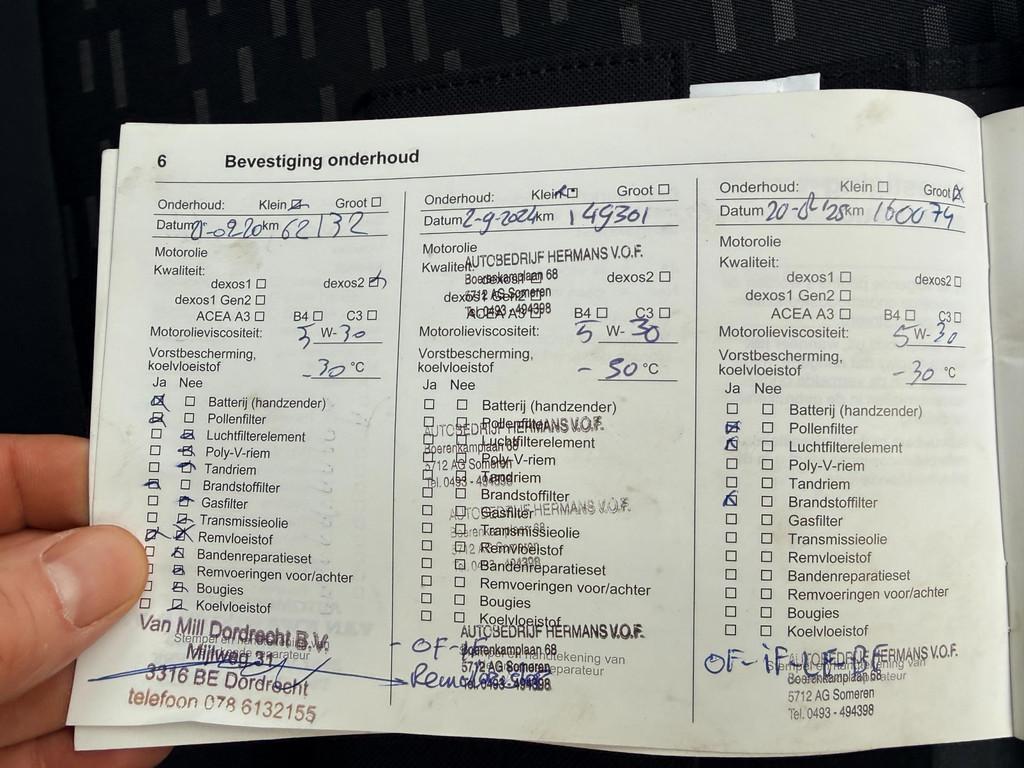 6 Bevestiging onderhoud
Onderhoud: Klein Groot
Datum km 62132
Motorolie
Kwaliteit:
dexos1 dexos2
dexos1 Gen2
ACEA A3 B4 C3
Motorolieviscositeit: 5 W-30
Vorstbescherming,
koelvloeistof -30 °C
Ja Nee
Batterij (handzender)
Pollenfilter
Luchtfilterelement
Poly-V-riem
Tandriem
Brandstoffilter
Gasfilter
Transmissieolie
Remvloeistof
Bandenreparatieset
Remvoeringen voor/achter
Bougies
Koelvloeistof
Van Mill Dordrecht B.V.
3316 BE Dordrecht
telefoon 078 6132155
Onderhoud: Klein Groot
Datum 2-9-2024 km 149301
Motorolie
AUTOBEDRIJF HERMANS V.O.F.
Kwaliteit:
Boerenkamplaan 68
dexos1 dexos2
5712 AG Someren
dexos1 Gen2
Tel. 0493 - 494398
ACEA A3 B4 C3
Motorolieviscositeit: 5 W-30
Vorstbescherming,
koelvloeistof -30 °C
Ja Nee
Batterij (handzender)
Pollenfilter
AUTOBEDRIJF HERMANS V.O.F.
Luchtfilterelement
Boerenkamplaan 68
Poly-V-riem
5712 AG Someren
Tandriem
Tel. 0493 - 494398
Brandstoffilter
Gasfilter
AUTOBEDRIJF HERMANS V.O.F.
Transmissieolie
Boerenkamplaan 68
Remvloeistof
5712 AG Someren
Bandenreparatieset
Tel. 0493 - 494398
Remvoeringen voor/achter
Bougies
Koelvloeistof
AUTOBEDRIJF HERMANS V.O.F.
- OF-
Boerenkamplaan 68
5712 AG Someren
Tel. 0493 - 494398
Onderhoud: Klein Groot
Datum km 160074
Motorolie
Kwaliteit:
dexos1 dexos2
dexos1 Gen2
ACEA A3 B4 C3
Motorolieviscositeit: 5 W-30
Vorstbescherming,
koelvloeistof -30 °C
Ja Nee
Batterij (handzender)
Pollenfilter
Luchtfilterelement
Poly-V-riem
Tandriem
Brandstoffilter
Gasfilter
Transmissieolie
Remvloeistof
Bandenreparatieset
Remvoeringen voor/achter
Bougies
Koelvloeistof
AUTOBEDRIJF HERMANS V.O.F.
Boerenkamplaan 68
5712 AG Someren
Tel. 0493 - 494398